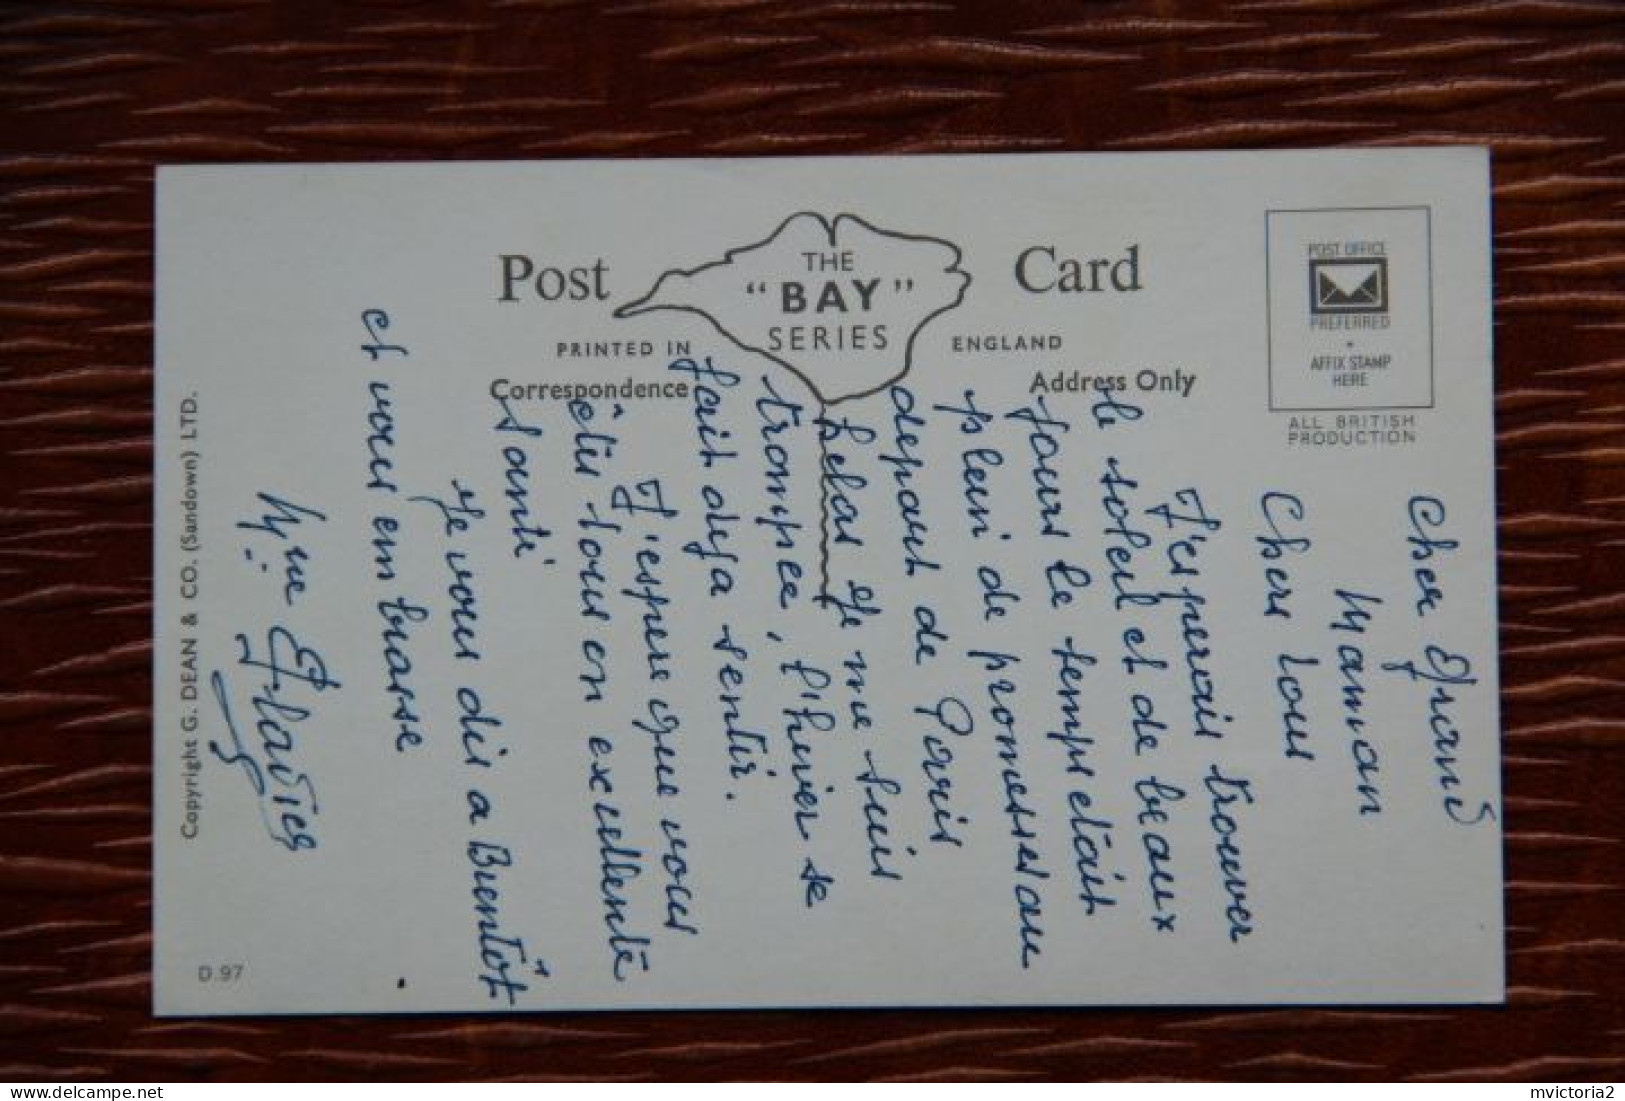 Post Card
THE
"BAY"
SERIES
PRINTED IN ENGLAND
Correspondence
Address Only
POST OFFICE
PREFERRED
AFFIX STAMP
HERE
ALL BRITISH
PRODUCTION
Copyright G. DEAN & CO. (Sandown) LTD.
D.97
Cher Grand
Maman
Chers tous
J'esperais trouver
le soleil et de beaux
jours le temps etait
plein de promesses au
depart de Paris
helas je me suis
trompee, l'hiver se
fait deja sentir.
J'espere que vous
êtes tous en excellente
santé
Je vous dis a Bientôt
et vous embrasse
mvictoria2